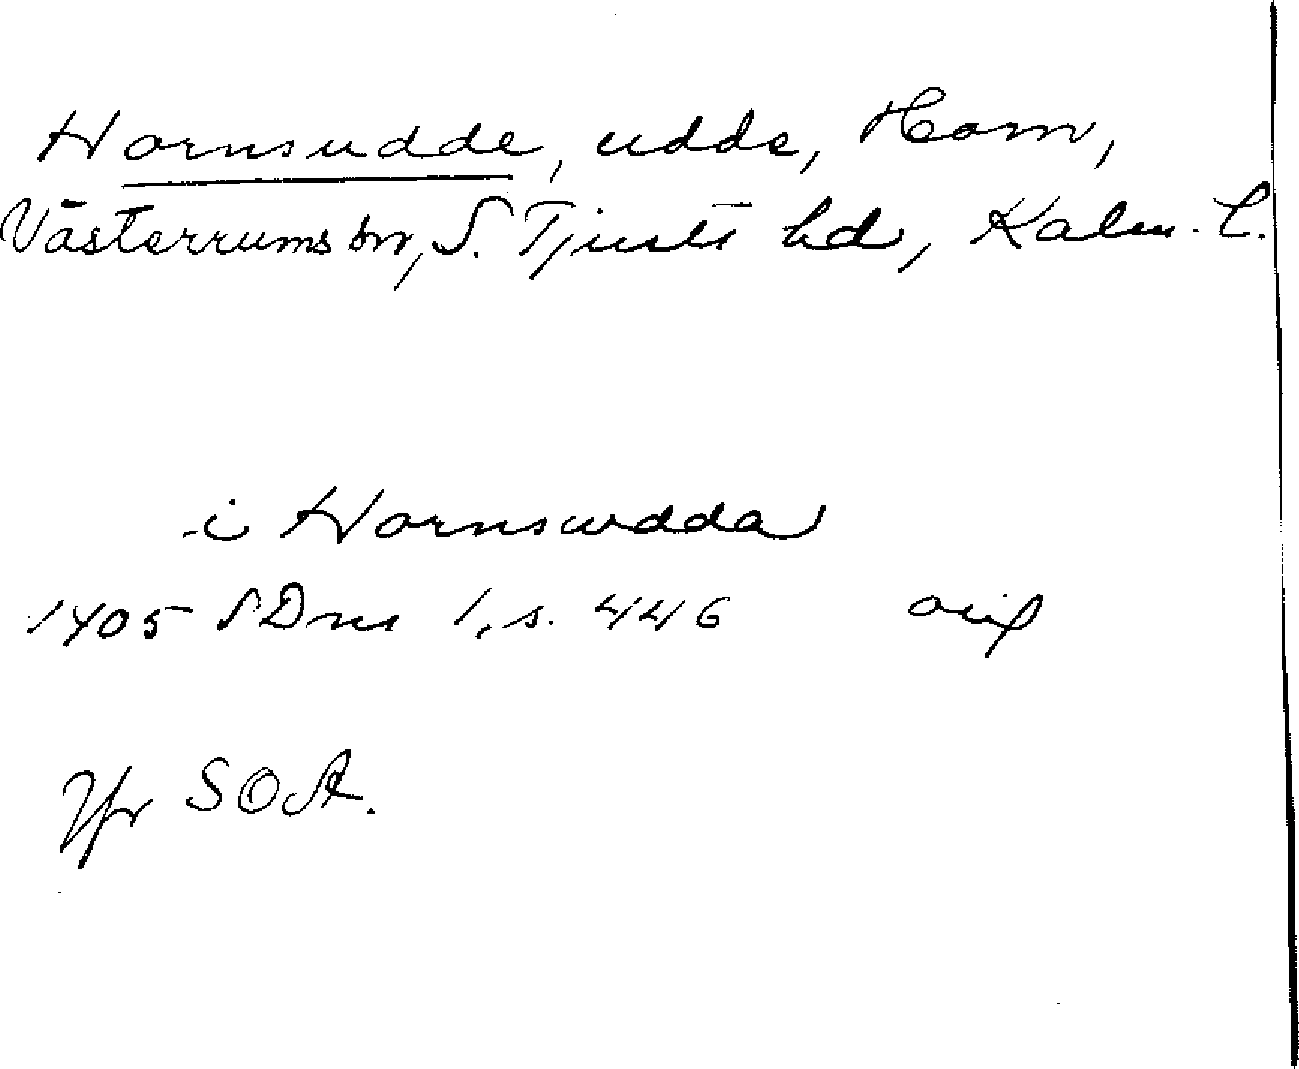 Hornsudde, udde, Horn,
Västerrums sn, S. Tjusts hd, Kalm. l.
i Hornsudda
1405 SDns 1, s. 446 orig
Jfr SOA.